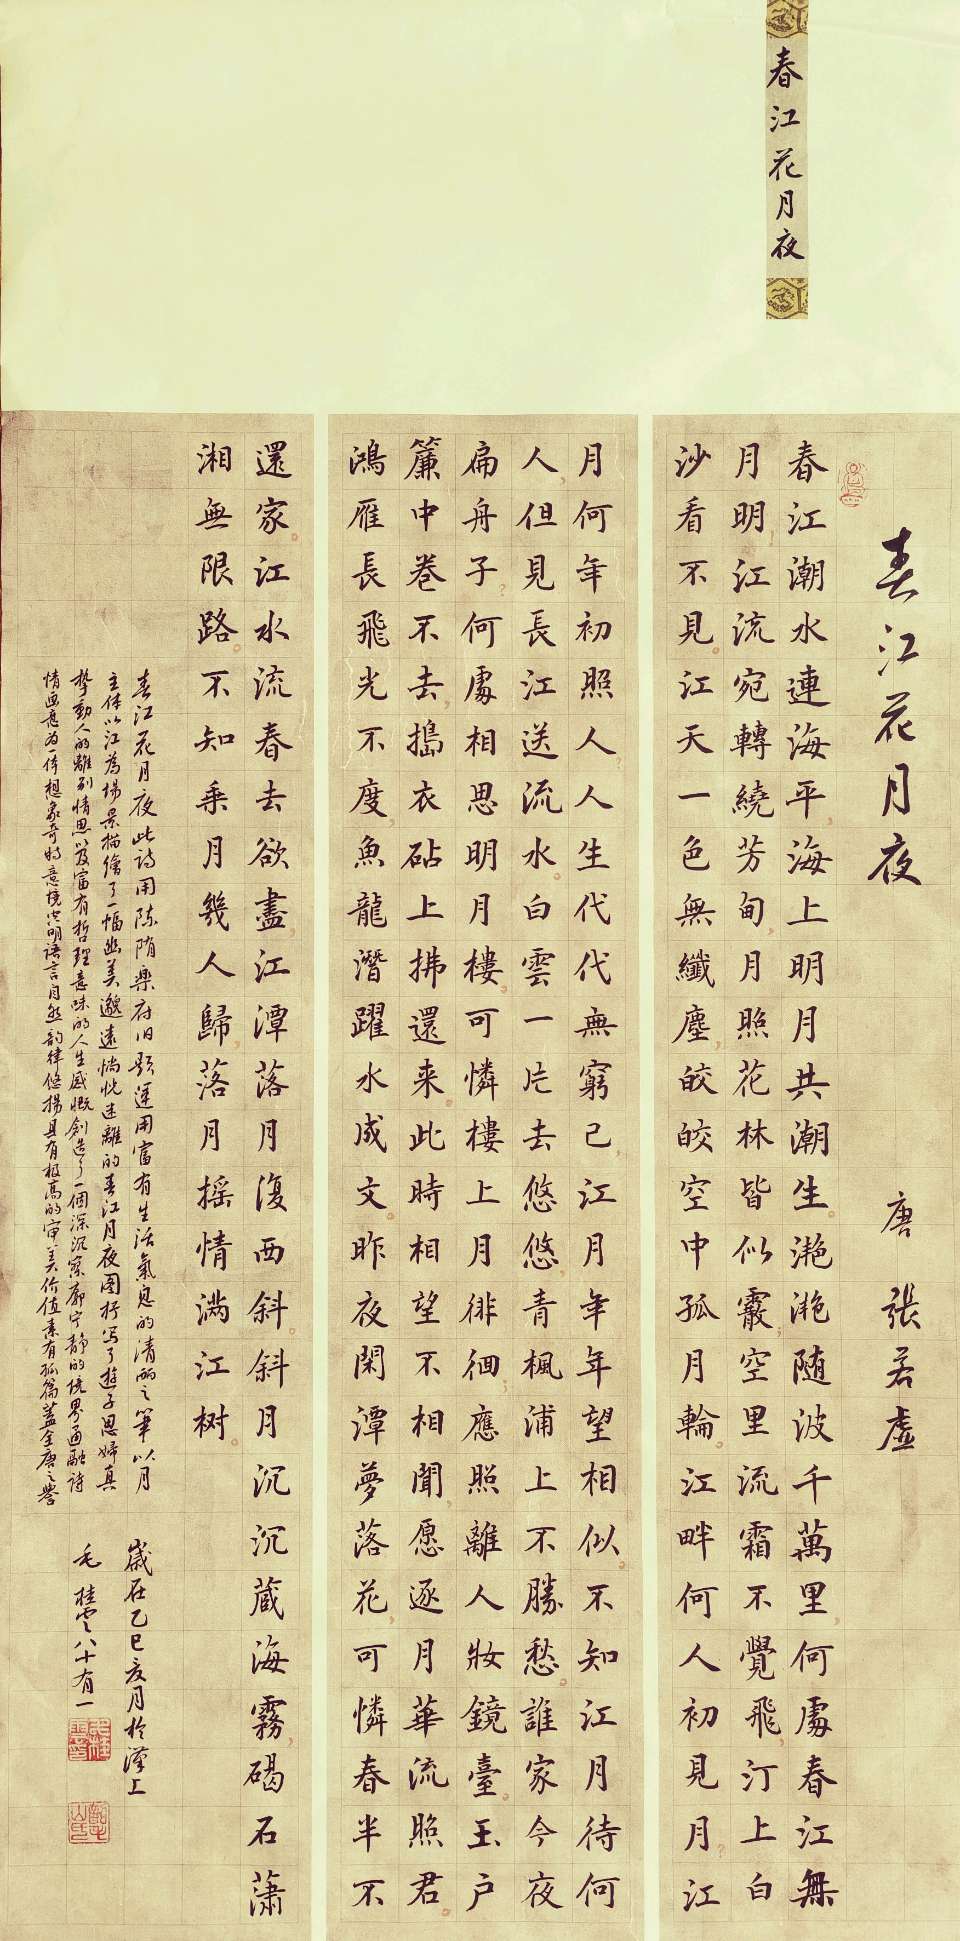 春江花月夜
春江花月夜
唐 張若虛
春江潮水連海平海上明月共潮生滟滟随波千萬里何處春江無
月明江流宛轉繞芳甸月照花林皆似霰空里流霜不覺飛汀上白
沙看不見江天一色無纖塵皎皎空中孤月輪江畔何人初見月江
月何年初照人人生代代無窮已江月年年望相似不知江月待何
人但見長江送流水白雲一片去悠悠青楓浦上不勝愁誰家今夜
扁舟子何處相思明月樓可憐樓上月徘徊應照離人妝鏡臺玉户
簾中卷不去搗衣砧上拂還来此時相望不相聞愿逐月華流照君
鴻雁長飛光不度魚龍潛躍水成文昨夜閑潭夢落花可憐春半不
還家江水流春去欲盡江潭落月復西斜斜月沉沉藏海霧碣石瀟
湘無限路不知乘月幾人歸落月摇情满江树
春江花月夜此诗用陈隋樂府旧题運用富有生活氣息的清丽之筆以月
主体以江為場景描繪了一幅幽美邈遠惝恍迷離的春江月夜图抒写了遊子思婦真
挚動人的離别情思以及富有哲理意味的人生感慨創造了一個深沉寥廓宁静的境界通融诗
情画意为一体想象奇特意境空明语言自然韵律悠揚具有极高的审美价值素有孤篇盖全唐之誉
歲在乙巳亥月於漢上
毛桂雲八十有一